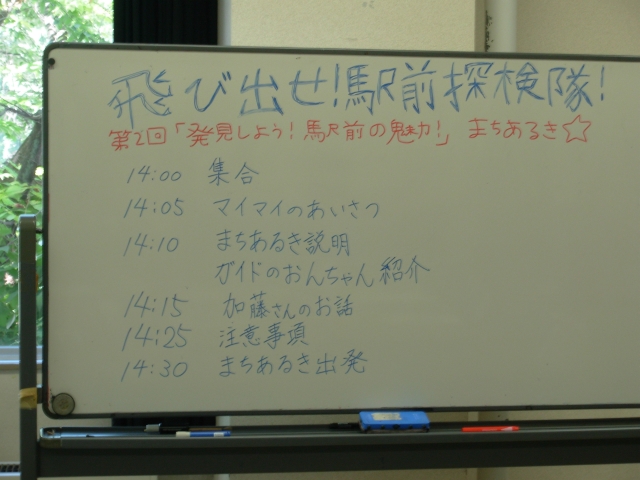 飛び出せ!駅前探検隊!
第2回「発見しよう!駅前の魅力!」 まちあるき☆
14:00 集合
14:05 マイマイのあいさつ
14:10 まちあるき説明
ガイドのおんちゃん紹介
14:15 加藤さんのお話
14:25 注意事項
14:30 まちあるき出発